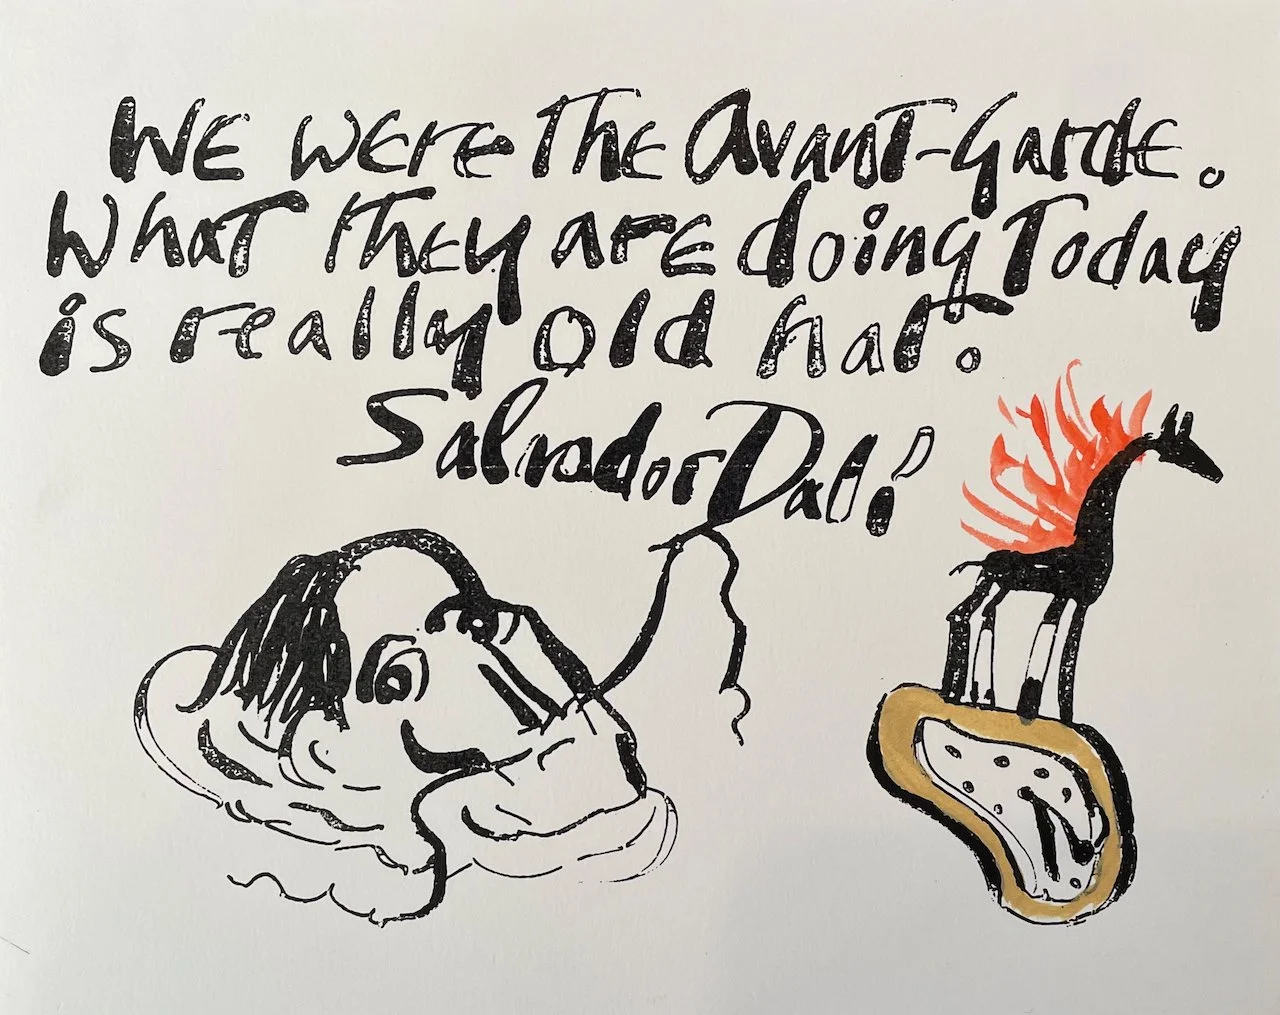 We were the Avant-Garde.
What they are doing Today
is really old hat.
Salvador Dalí